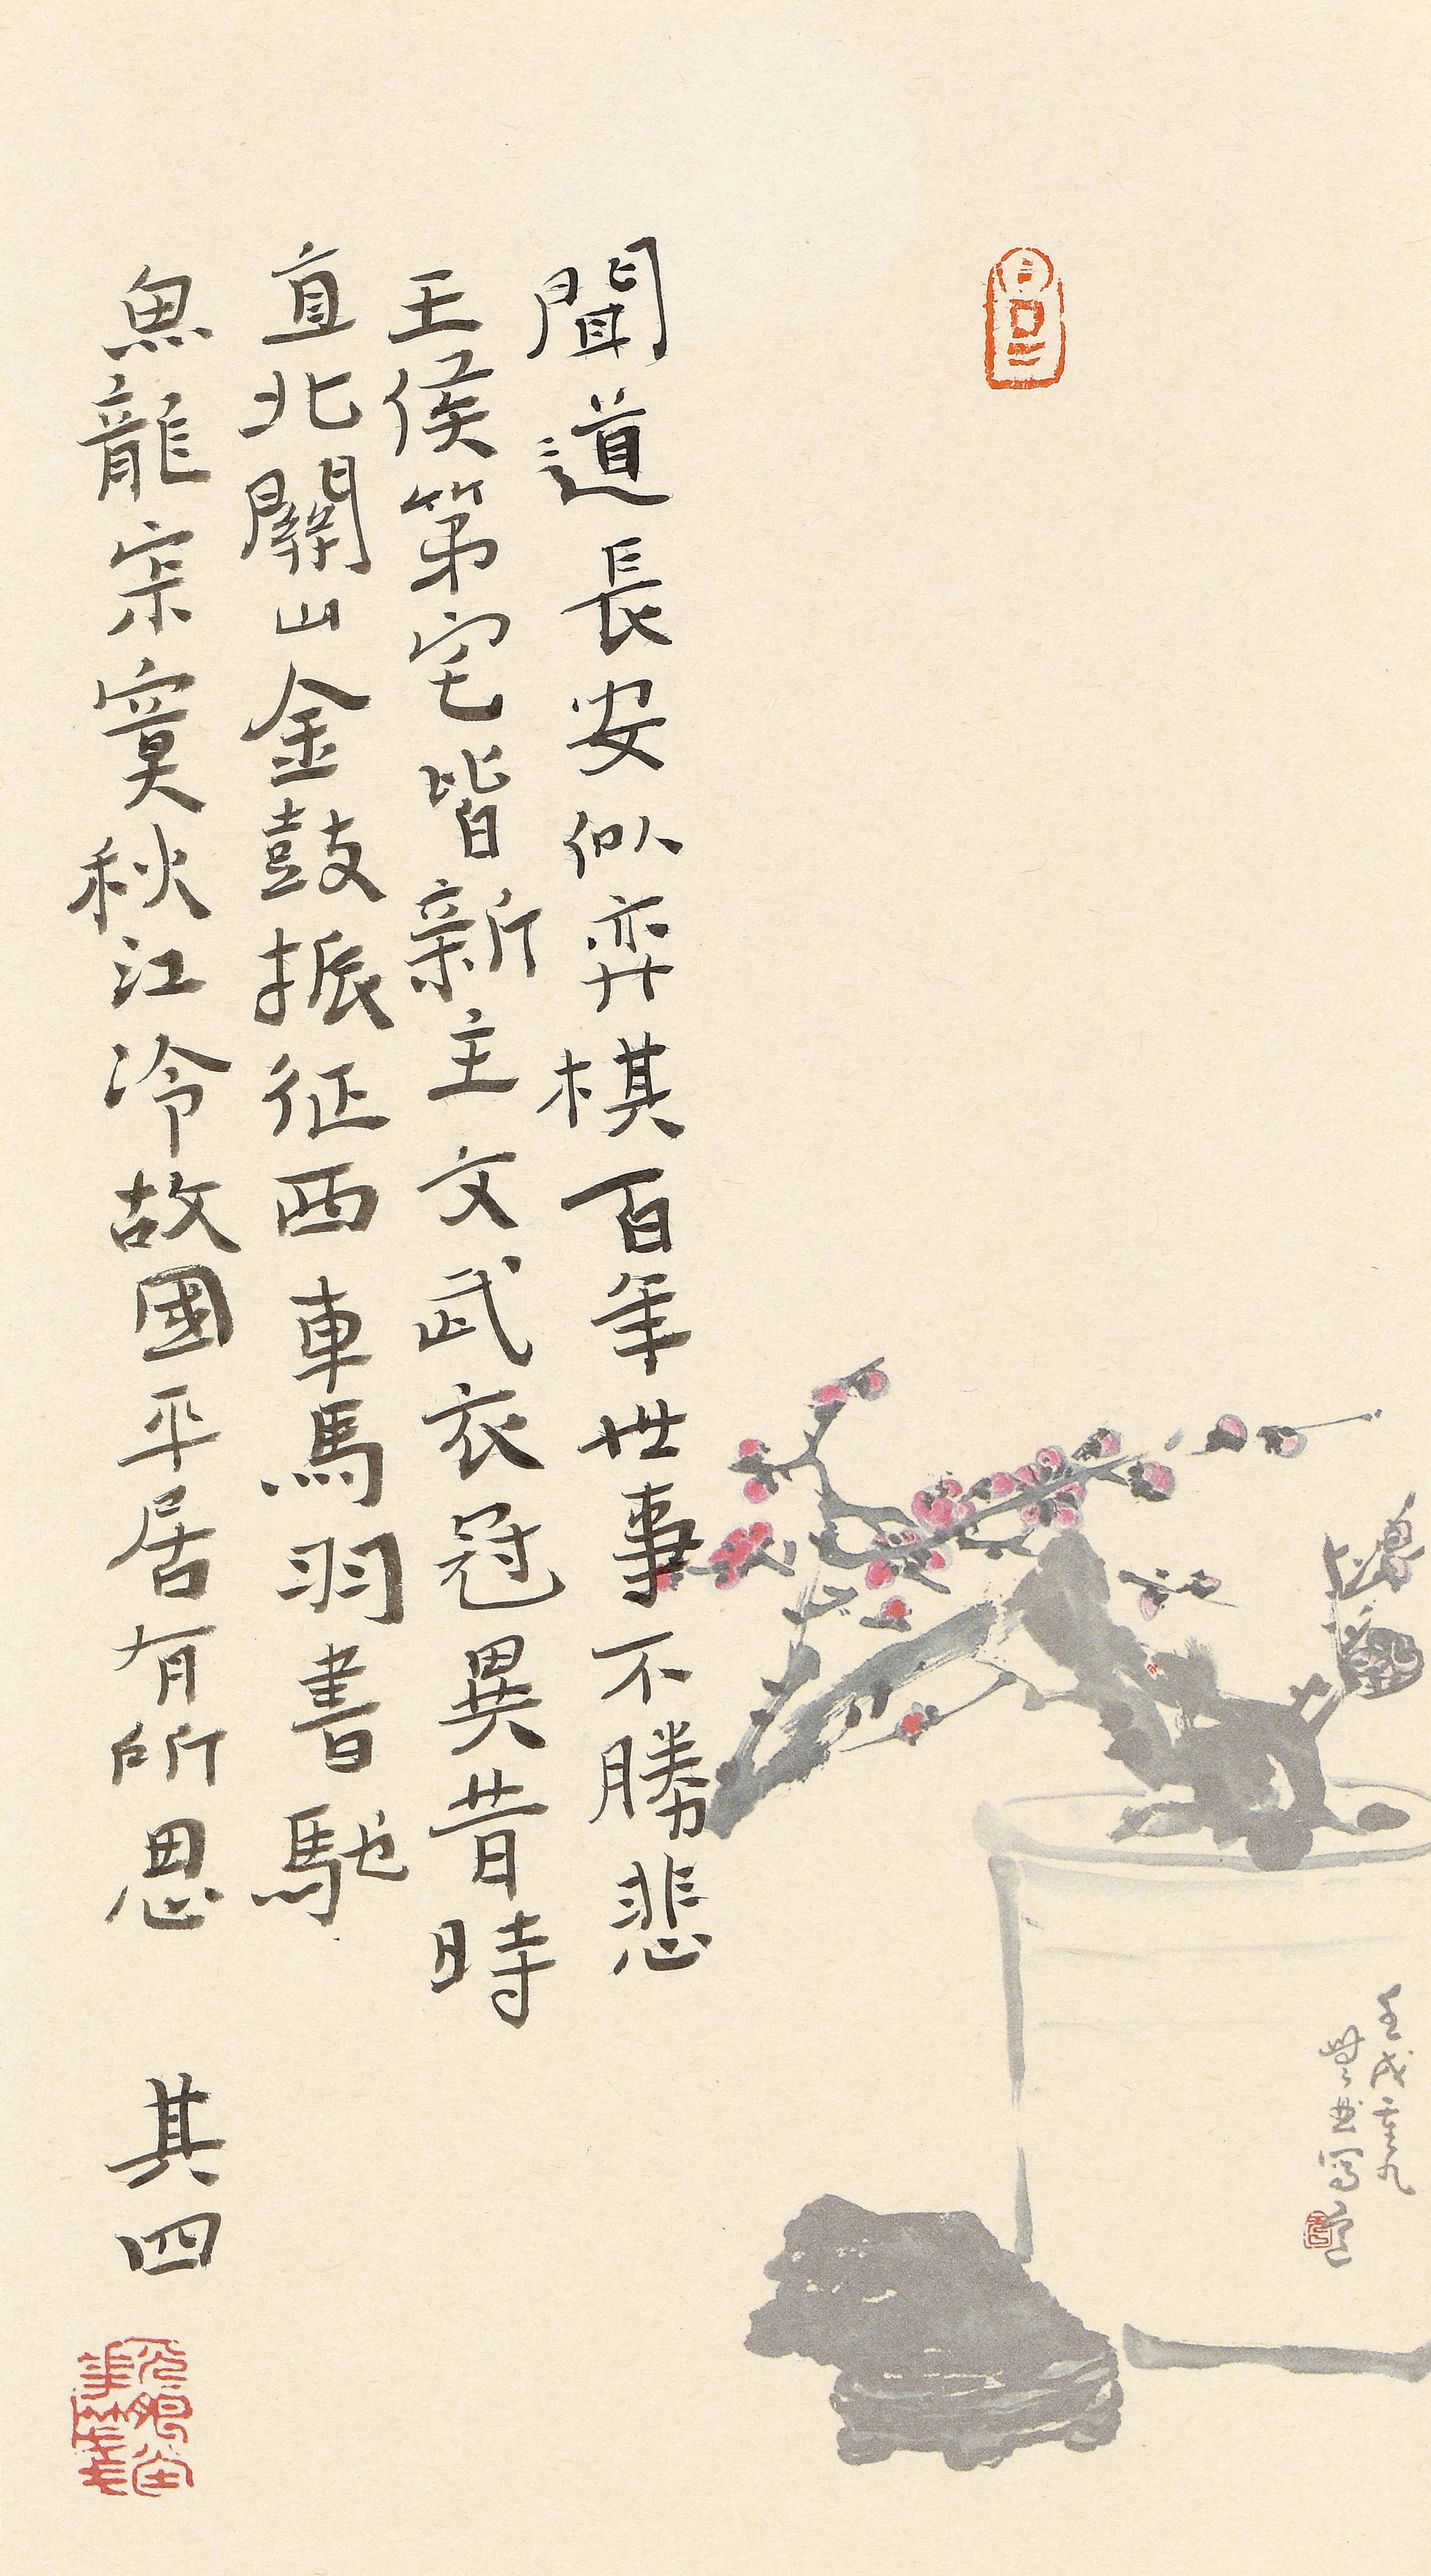 聞道長安似弈棋百年世事不勝悲
王侯第宅皆新主文武衣冠異昔時
直北關山金鼓振征西車馬羽書馳
魚龍寂寞秋江冷故國平居有所思 其四